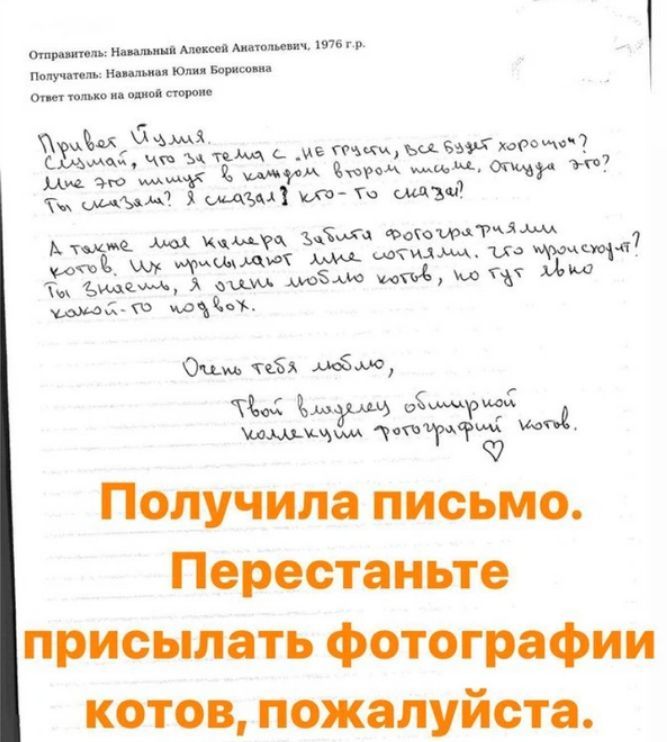 Отправитель: Навальный Алексей Анатольевич, 1976 г.р.
Получатель: Навальная Юлия Борисовна
Ответ только на одной стороне
Привет Йулия.
Слушай, что за тема с „не грусти, все будет хорошо"?
Мне это пишут в каждом втором письме. Откуда это?
Ты сказала? Я сказал? кто-то сказал?
А также моя камера забита фотографиями
котов. Их присылают мне сотнями. Что происходит?
Ты знаешь, я очень люблю котов, но тут явно
какой-то подвох.
Очень тебя люблю,
Твой владелец обширной
коллекции фотографий котов.
♡
Получила письмо.
Перестаньте
присылать фотографии
котов, пожалуйста.